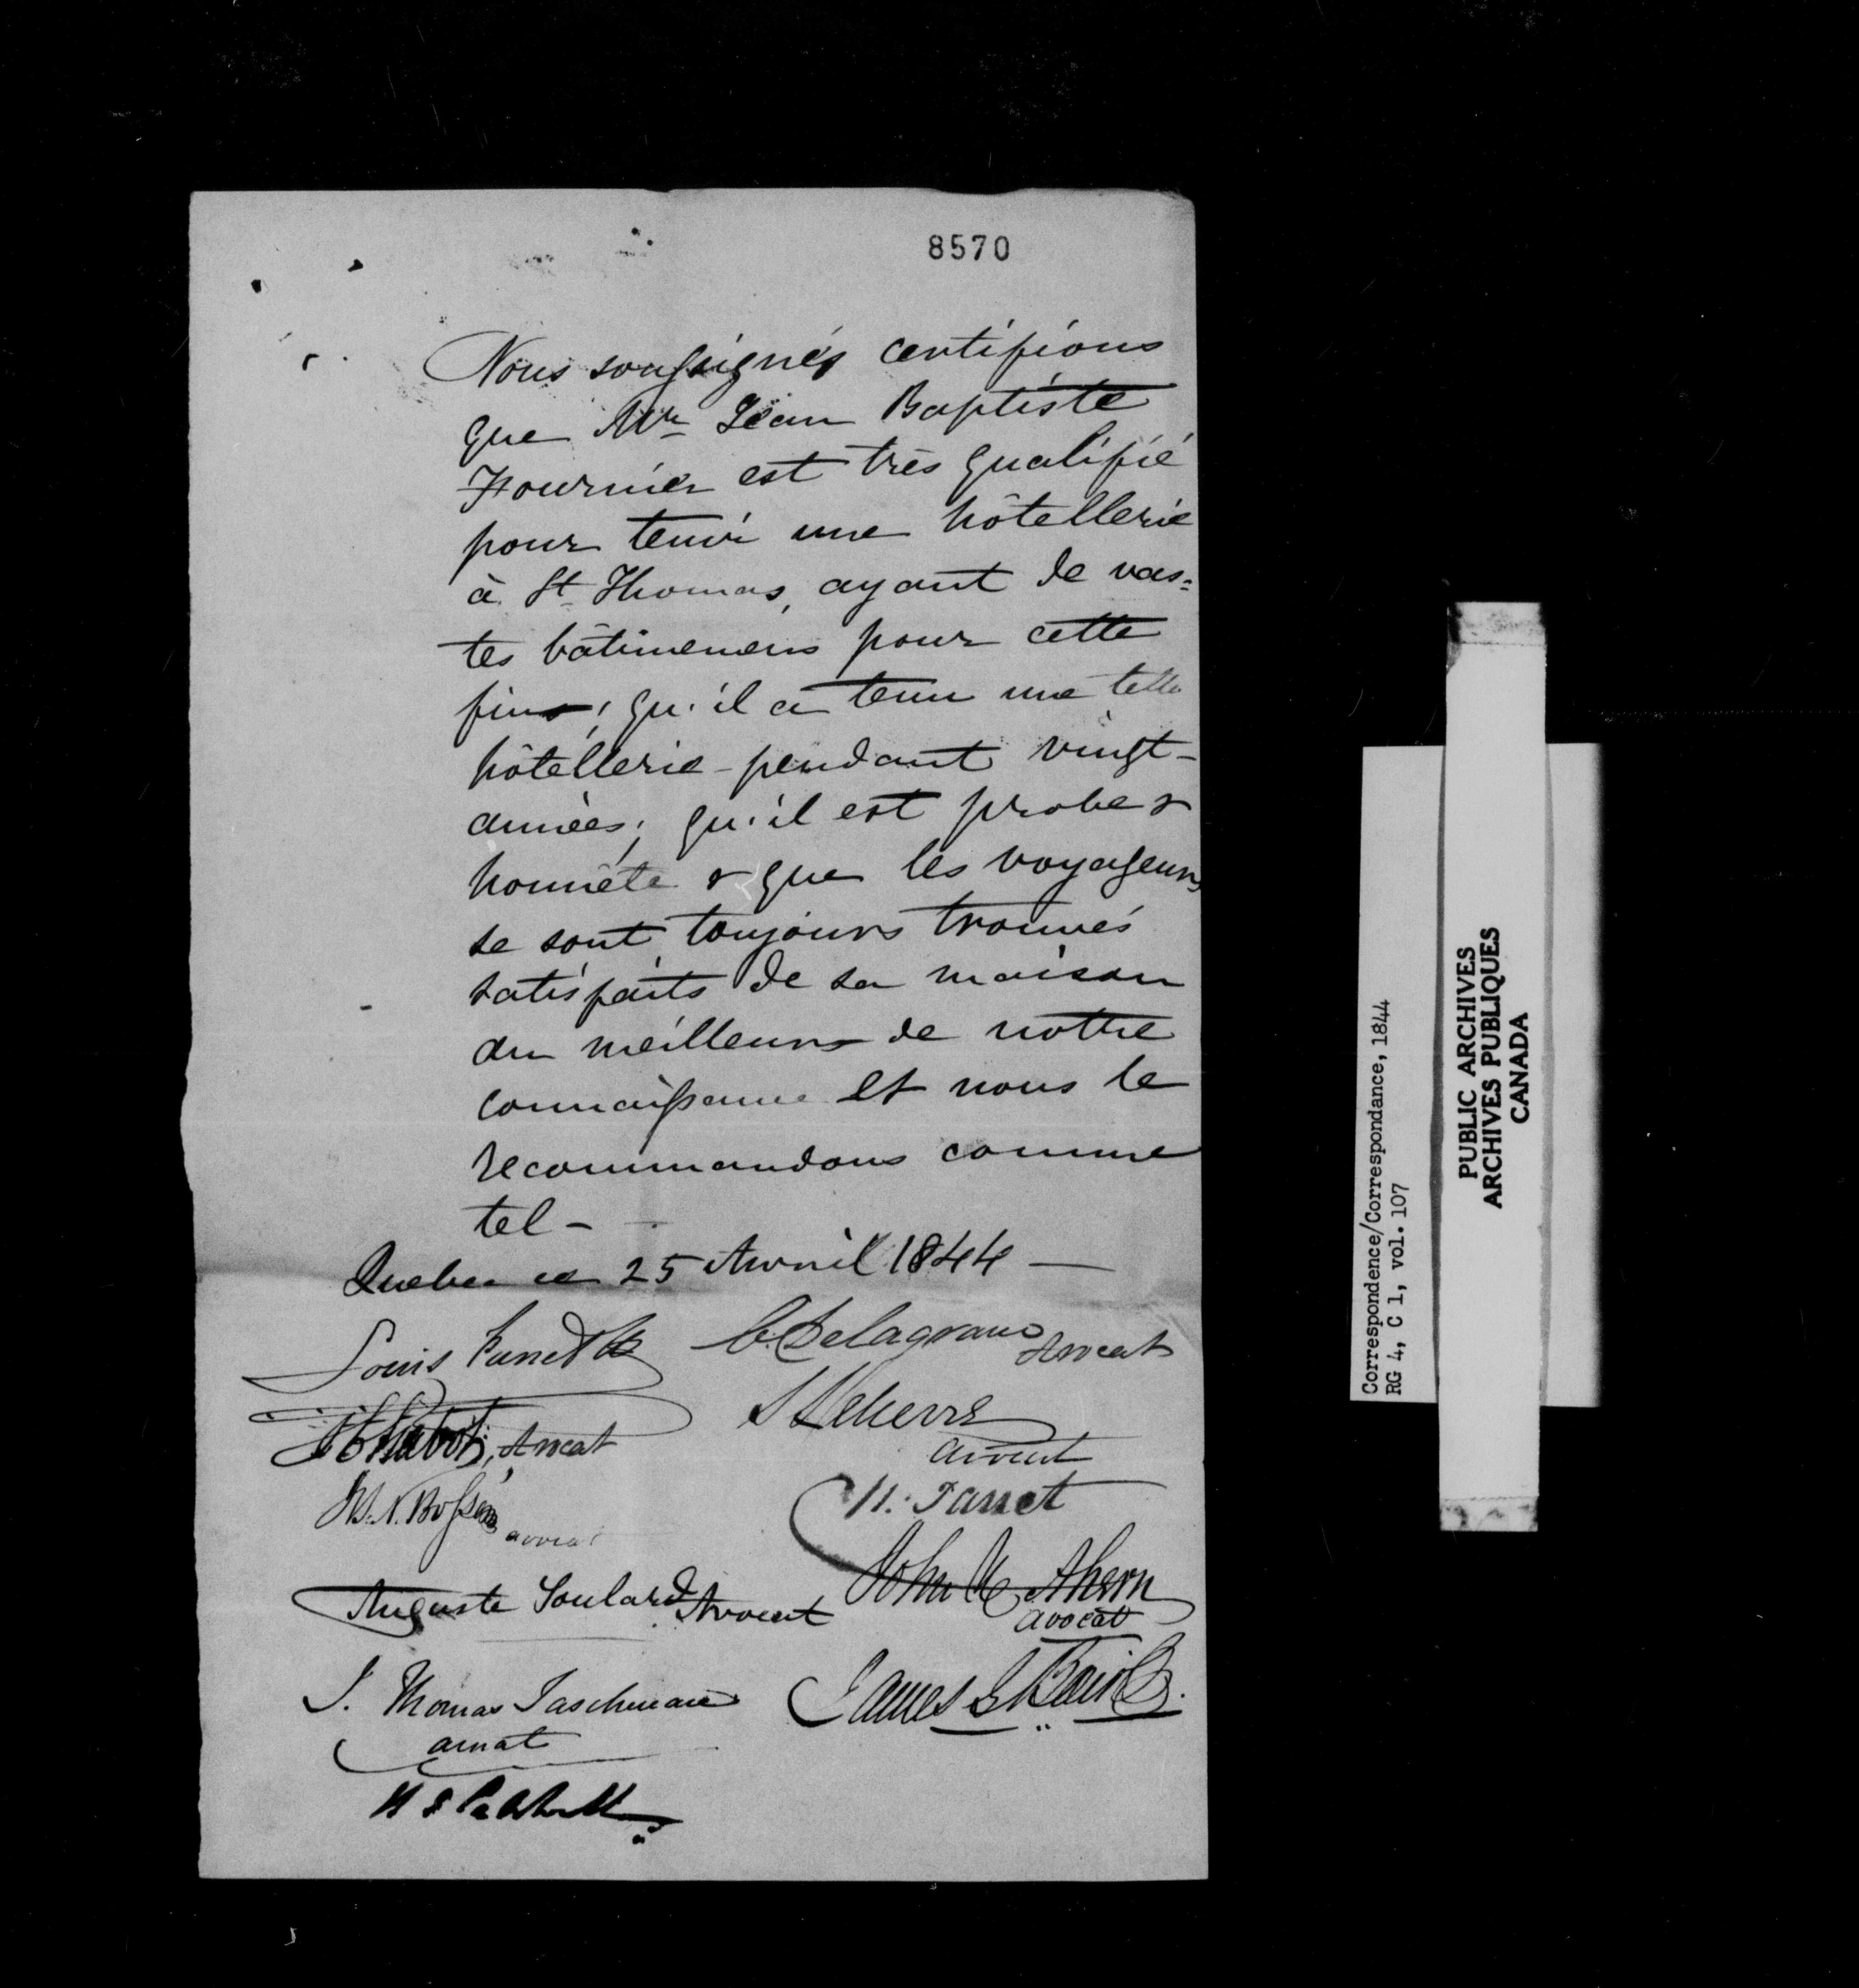 8570
Nous soussignés certifions
que Mr Jean Baptiste
Fournier est très qualifié
pour tenir une hôtellerie
à St Thomas, ayant de vas=
tes bâtimens pour cette
fin; qu'il a tenu une telle
hôtellerie pendant vingt-
années; qu'il est probe &
honnête & que les voyageurs
se sont toujours trouvés
satisfaits de sa maison
au meilleur de notre
connaissance et nous le
recommandons comme
tel -
Quebec ce 25 Avril 1844 —
Louis Panet
C. Delagrave Avocat
J Chabot, Avocat
Avocat
Js. N. Bossé avocat
Panet
Auguste Soulard Avocat
John Ahern
avocat
J. Thomas Taschereau
avocat
James
Correspondence/Correspondance, 1844
RG 4, C 1, vol. 107
PUBLIC ARCHIVES
ARCHIVES PUBLIQUES
CANADA